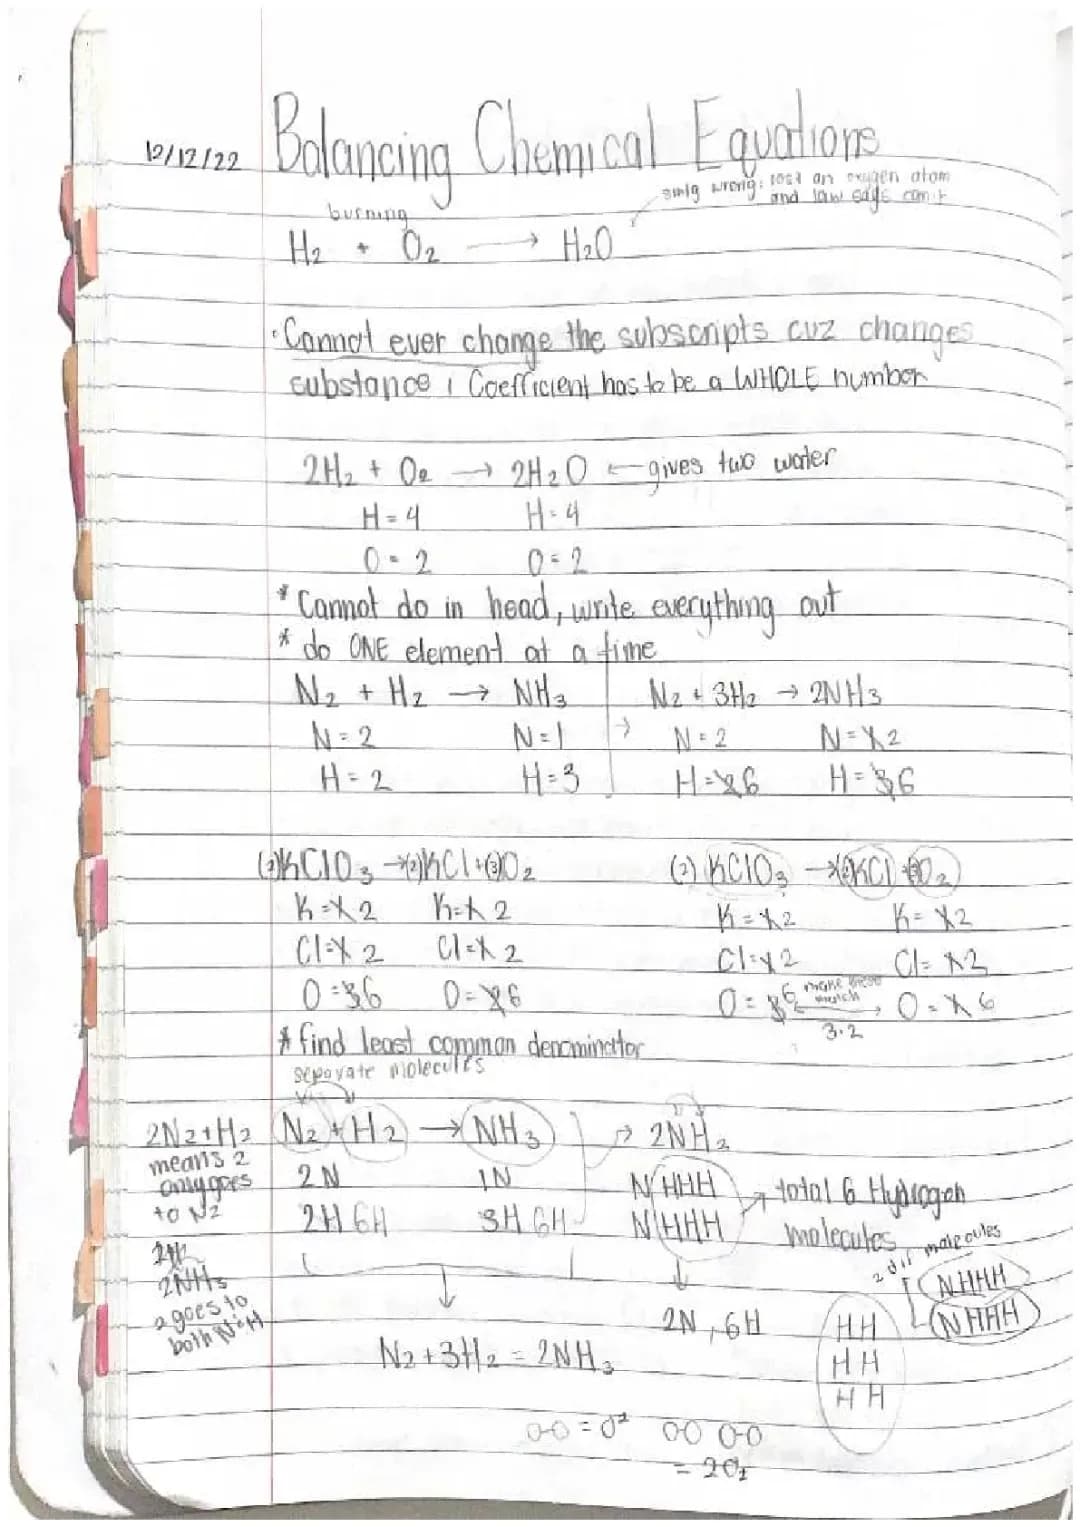 Balancing Chemical Equations
12/12/22
smtg wrong: lost an oxygen atom
and law says can't
burning
H2 + O2 → H2O
• Cannot ever change the subscripts cuz changes
substance, Coefficient has to be a WHOLE number
2H2 + O2 → 2H2O ← gives two water
H = 4 H = 4
O = 2 O = 2
* Cannot do in head, write everything out
* do ONE element at a time
N2 + H2 → NH3 N2 + 3H2 → 2NH3
N = 2 N = 1 → N = 2 N = 1 2
H = 2 H = 3 H = 2 6 H = 3 6
(2)KClO3 → (2)KCl + (3)O2 (2) KClO3 → (2)KCl + (3)O2
K = 1 2 K = 1 2 K = 1 2 K = 1 2
Cl = 1 2 Cl = 1 2 Cl = 1 2 Cl = 1 2
O = 3 6 O = 2 6 O = 3 6 make these match O = 2 6
3·2
* find least common denominator
separate molecules
2N2+H2 N2 + H2 → NH3 → 2NH3
means 2
only goes
to N2
2N 1N NHHH
2H 6H 3H 6H NHHH → total 6 Hydrogen
molecules
2NH3
2 goes to
both N & H
2 diff molecules
NHHH
NHHH
2N, 6H
HH
HH
HH
N2 + 3H2 = 2NH3
O-O = O2 O-O O-O
= 2O2